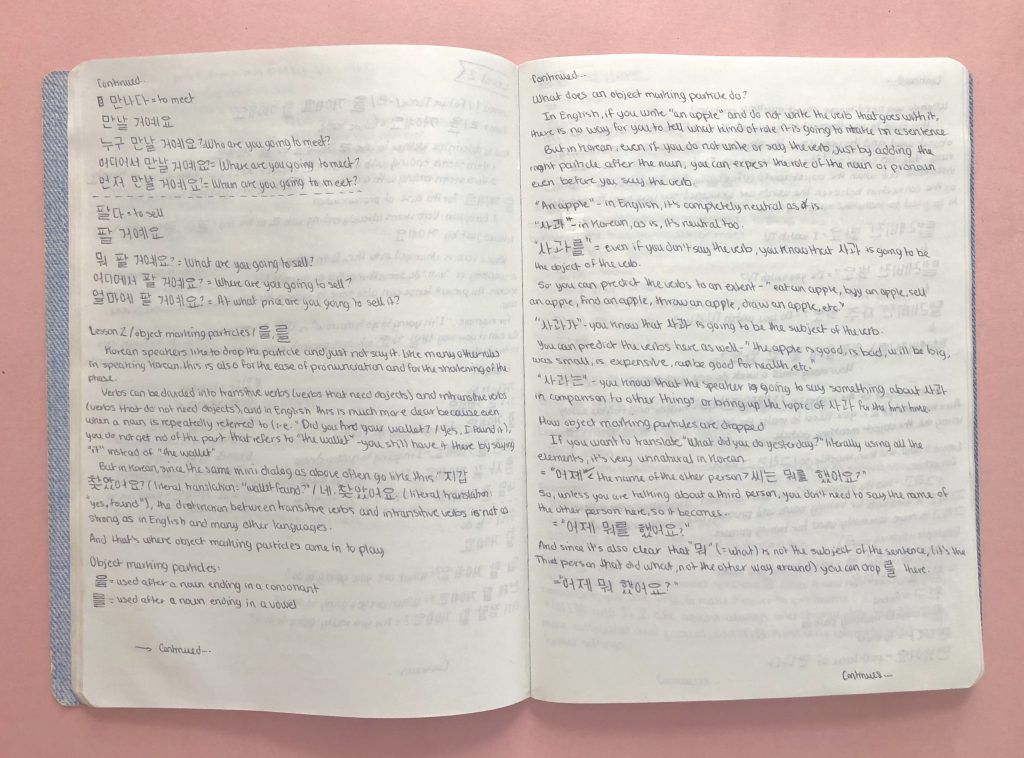 Continued...
만나다 = to meet
만날 거예요
누구 만날 거예요? Who are you going to meet?
어디어서 만날 거예요? = Where are you going to meet?
언저 만날 거예요? = When are you going to meet?
팔다 = to sell
팔 거예요
뭐 팔 거예요? = What are you going to sell?
어디에서 팔 거예요? = Where are you going to sell?
얼마에 팔 거예요? = At what price are you going to sell it?
Lesson 2 / object marking particles / 을, 를
Korean speakers like to drop the particle and just not say it. Like many other rules
in speaking Korean, this is also for the ease of pronunciation and for the shortening of the
phrase.
Verbs can be divided into transitive verbs (verbs that need objects) and intransitive verbs
(verbs that do not need objects), and in English this is much more clear because even
when a noun is repeatedly referred to (i.e. "Did you find your wallet? / Yes, I found it),
you do not get rid of the part that refers to "the wallet" - you still have it there by saying
"it" instead of "the wallet"
But in Korean, since the same mini dialog as above often go like this "지갑
찾았어요? (literal translation: "wallet found?" / 네. 찾았어요 (literal translation:
"yes, found"), the distinction between transitive verbs and intransitive verbs is not as
strong as in English and many other languages.
And that's where object marking particles came in to play
Object marking particles:
을 = used after a noun ending in a consonant
를 = used after a noun ending in a vowel
→ Continued...
Continued...
What does an object marking particle do?
In English, if you write "an apple" and do not write the verb that goes with it,
there is no way for you to tell what kind of role it is going to make in a sentence
But in Korean, even if you do not write or say the verb, just by adding the
right particle after the noun, you can express the role of the noun or pronoun
even before you say the verb.
"An apple" - in English, it's completely neutral as is.
"사과" - in Korean, as is, it's neutral too.
"사과를" = even if you don't say the verb, you know that 사과 is going to be
the object of the verb.
So you can predict the verbs to an extent - "eat an apple, buy an apple, sell
an apple, find an apple, throw an apple, draw an apple, etc."
"사과가" - you know that 사과 is going to be the subject of the verb.
You can predict the verbs here as well - "the apple is good, is bad, will be big,
was small, is expensive, can be good for health, etc."
"사과는" - you know that the speaker is going to say something about 사과
in comparison to other things or bring up the topic of 사과 for the first time.
How object marking particles are dropped
If you want to translate "What did you do yesterday?" literally using all the
elements, it's very unnatural in Korean
= "어제 the name of the other person? 씨는 뭐를 했어요?"
So, unless you are talking about a third person, you don't need to say the name of
the other person here, so it becomes.
= "어제 뭐를 했어요?"
And since it's also clear that "뭐" (= what) is not the subject of the sentence, (it's the
Third person that did what, not the other way around) you can drop 를 there.
= "어제 뭐 했어요?"
Continued...